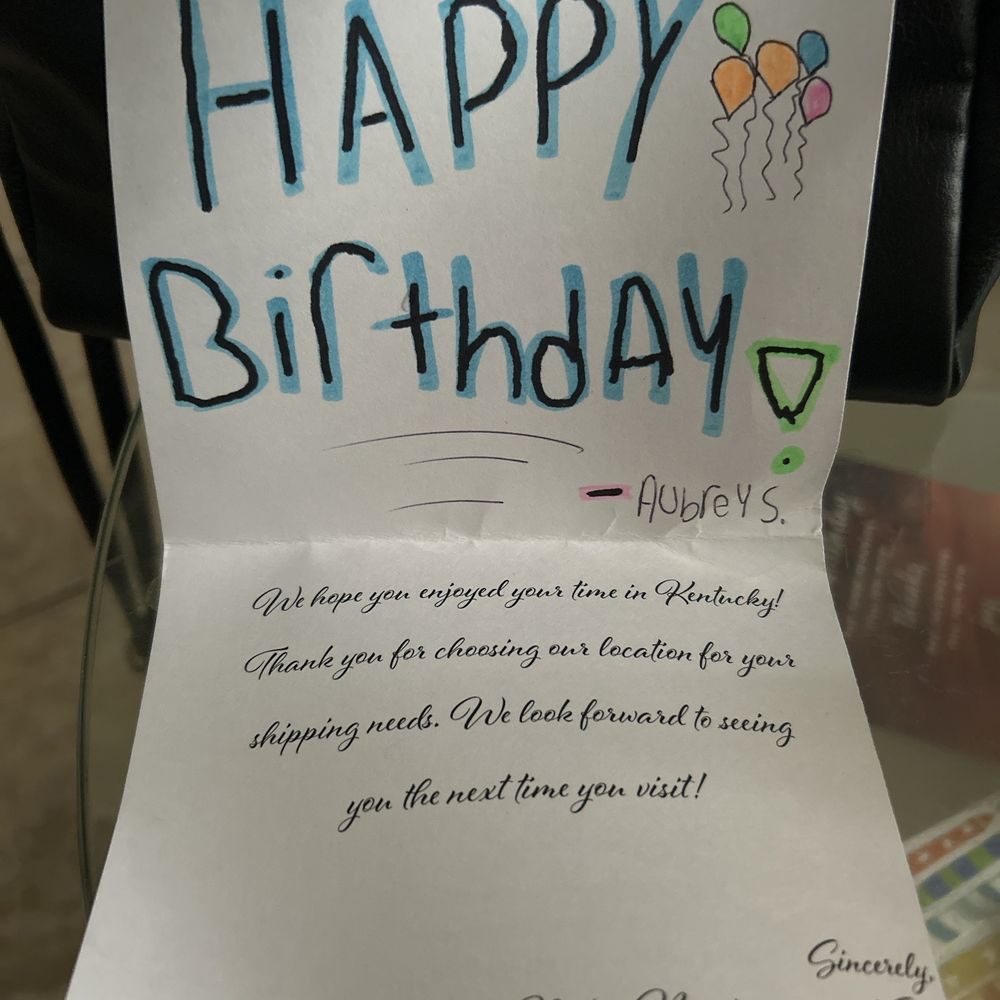 HAPPY
BirthdAy!
- Aubrey S.
We hope you enjoyed your time in Kentucky!
Thank you for choosing our location for your
shipping needs. We look forward to seeing
you the next time you visit!
Sincerely,